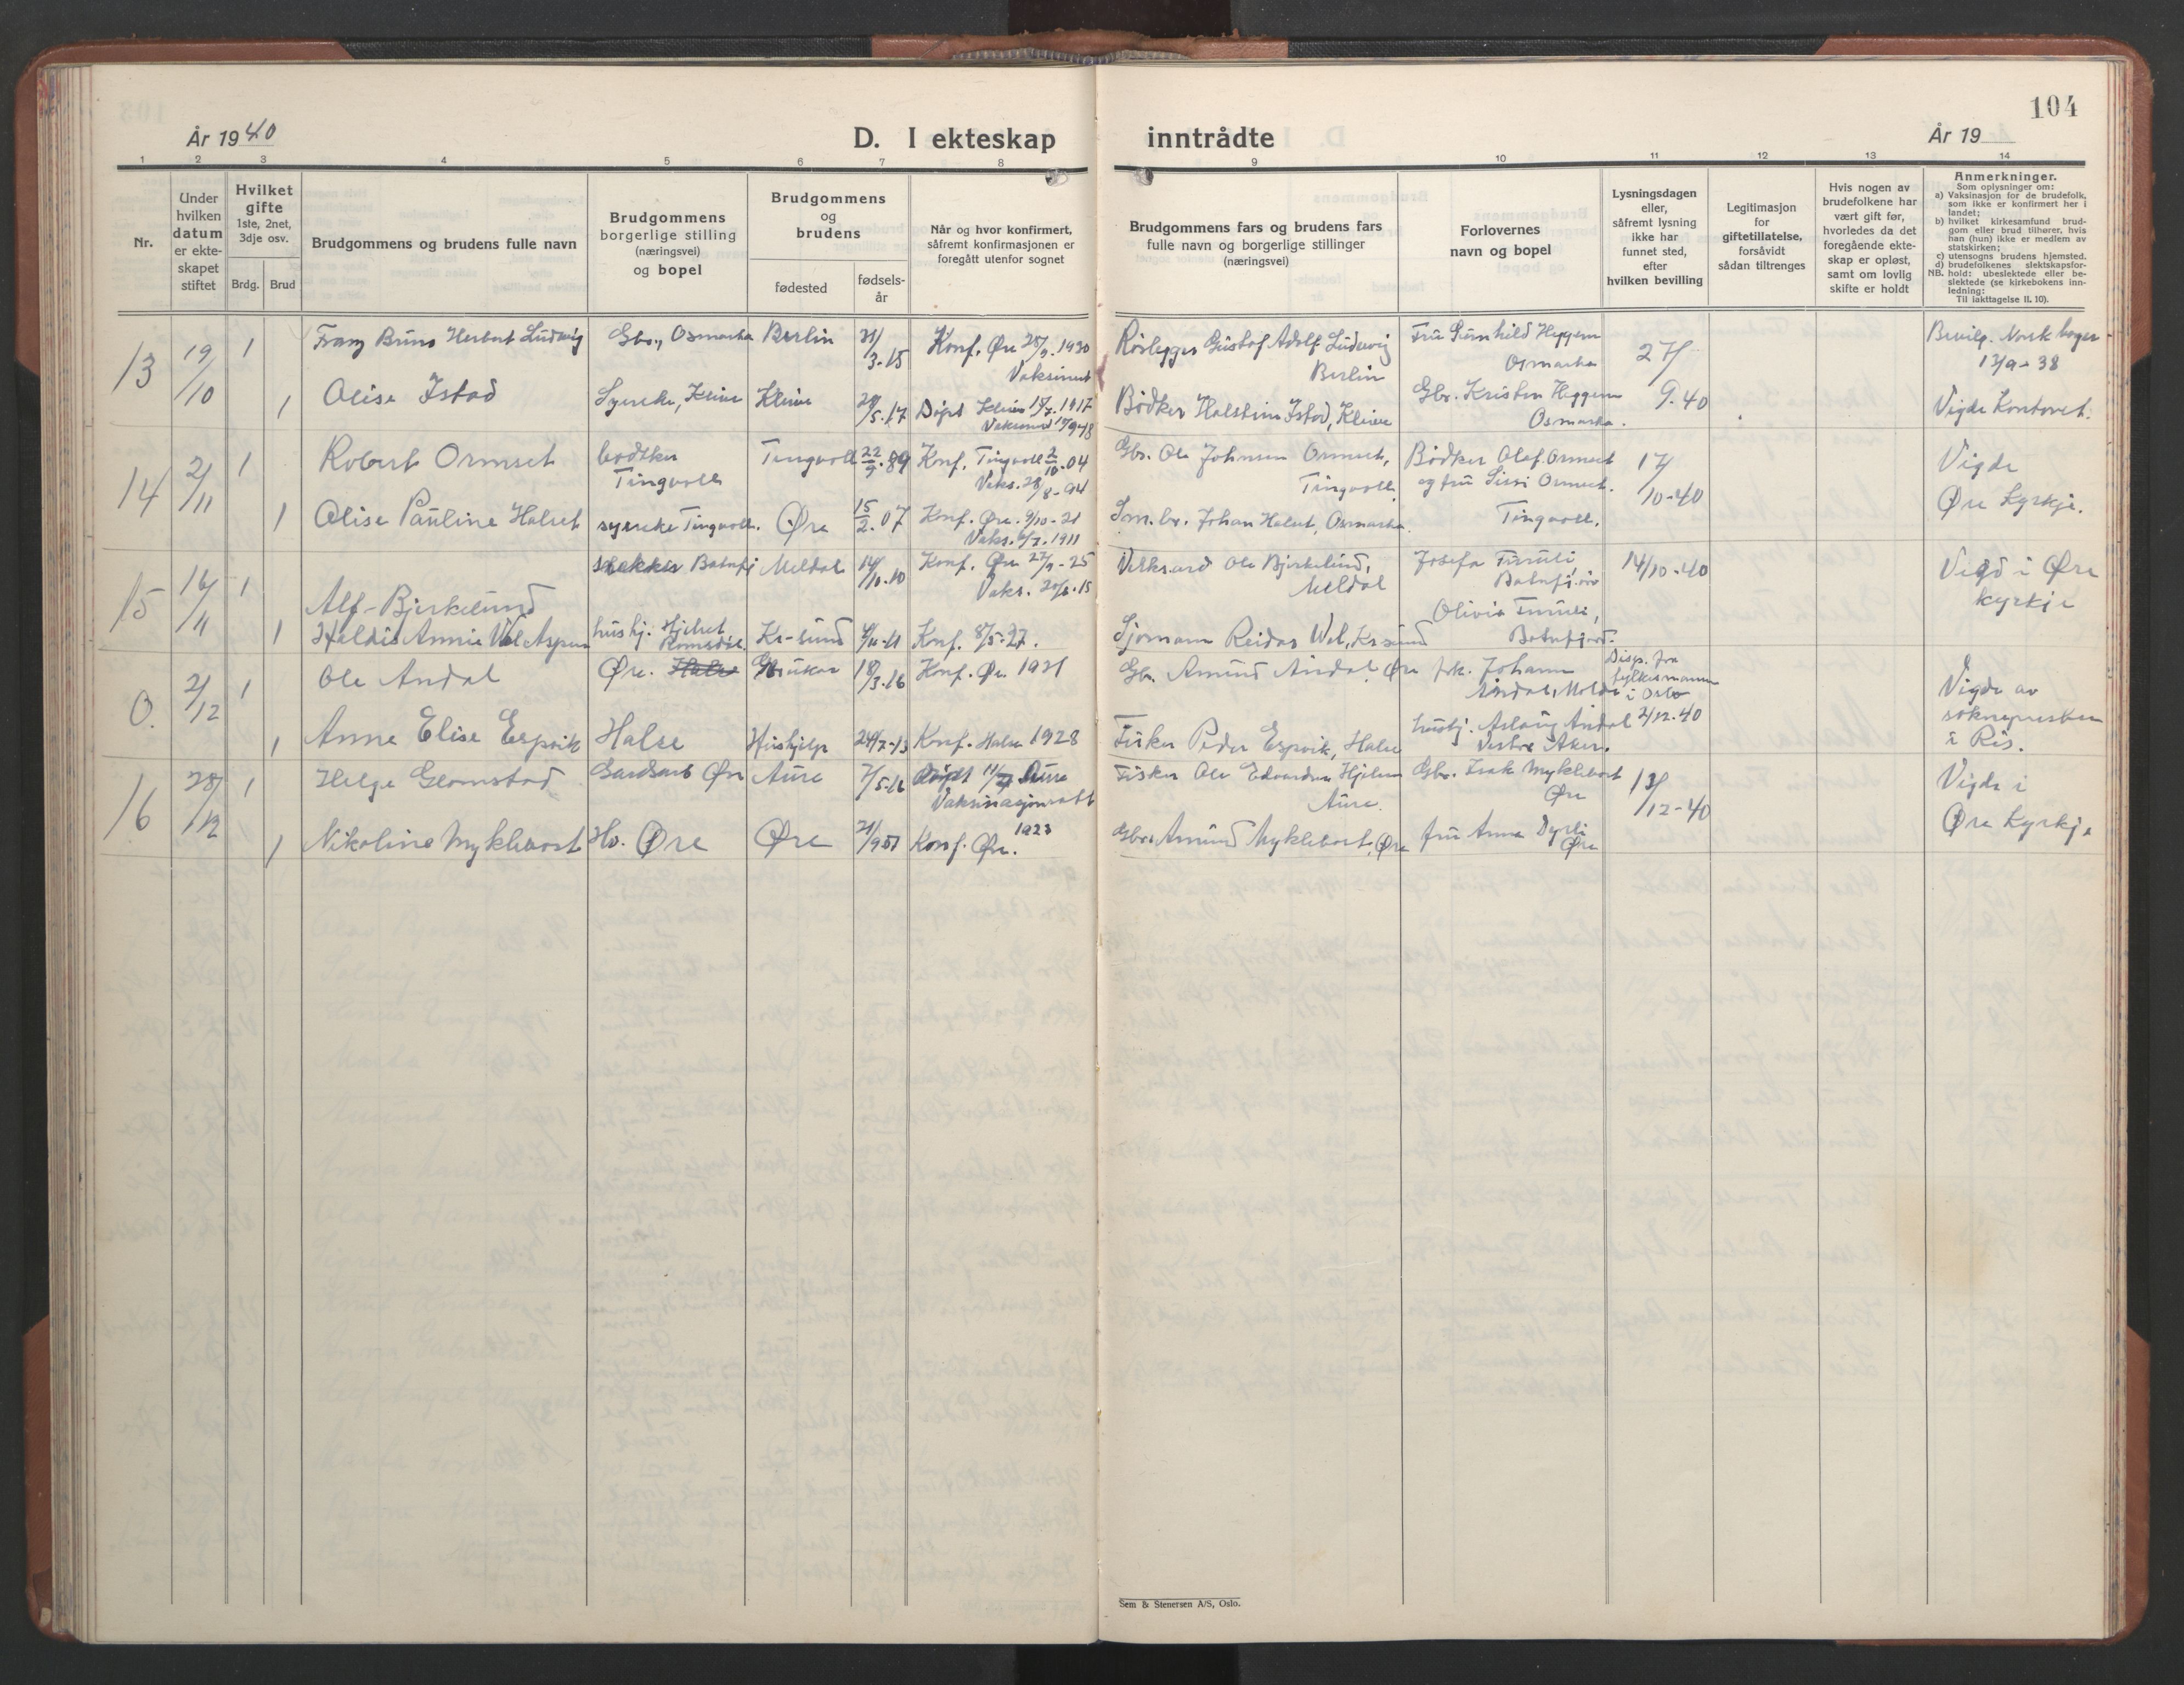 104
År 1940
D. I ekteskap inntrådte
År 19
1 2 3 4 5 6 7 8 9 10 11 12 13 14
Nr.
Under
hvilken
datum
er ekte-
skapet
stiftet
Hvilket
gifte
1ste, 2net,
3dje osv.
Brdg. Brud
Brudgommens og brudens fulle navn
Brudgommens
borgerlige stilling
(næringsvei)
og bopel
Brudgommens
og
brudens
fødested
fødsels-
år
Når og hvor konfirmert,
såfremt konfirmasjonen er
foregått utenfor sognet
Brudgommens fars og brudens fars
fulle navn og borgerlige stillinger
(næringsvei)
Forlovernes
navn og bopel
Lysningsdagen
eller,
såfremt lysning
ikke har
funnet sted,
efter
hvilken bevilling
Legitimasjon
for
giftetillatelse,
forsåvidt
sådan tiltrenges
Hvis nogen av
brudefolkene har
vært gift før,
hvorledes da det
foregående ekte-
skap er opløst,
samt om lovlig
skifte er holdt
Anmerkninger.
Som oplysninger om:
a) Vaksinasjon for de brudefolk,
som ikke er konfirmert her i
landet;
b) hvilket kirkesamfund brud-
gom eller brud tilhører, hvis
han (hun) ikke er medlem av
statskirken;
c) utensogns brudens hjemsted.
d) brudefolkenes slektskapsfor-
NB. hold: ubeslektede eller be-
slektede (se kirkebokens inn-
ledning:
Til iakttagelse II. 10).
13 19/10 1 Franz Bruno Herbert Ludwig Gbr., Osmarka Berlin 31/3-15 Konf. Øre 28/9. 1930 Rørlegger Gustaf Adolf Ludwig Fru Gunhild Heggem 27/ Bevilg. Norsk borger
Vaksinert Berlin Osmarka 12/9-38
1 Olise Istad Syerske, Kleive Kleive 5-17 Døpt Kleive 1917 Bødker Halstein Istad, Kleive Gbr. Kristen Heggem 9.40 Vigde Kontoret.
Osmarka.
14 2/11 1 Robert Ormset bødtker Tingvoll 22/9.89 Konf. Tingvoll 2/10-04 Gbr. Ole Johnsen Ormset, Bødker Olaf Ormset 17/ Vigde
Tingvoll Vaks. 28/8-94 Tingvoll og fru Sissi Ormset. 10-40
1 Olise Pauline Halset syerske Tingvoll. Øre 15/2.07 Konf. Øre. 9/10-21 Sm.br. Johan Halset, Osmarka. Tingvoll. Øre Kyrkje.
Vaks. 6/7. 1911
15 16/11 1 Alf Bjerkelund Batnfj Meldal 14/10-10 Konf. Øre 27/9-25 Ole Bjerkelund, Josefa Furuli, 14/10-40 Vigd i Øre
Vaks. 20/6.15 Meldal Batnfj.ør kyrkje
Olivia Furuli,
1 Haldis Annie Wol Aspen hushj. Hjelset Kr-sund 4/11-11 Konf. 8/5-27. Sjømann Reidar Wol, Krsund Batnfjord.
Romsdal.
0. 2/12 1 Ole Andal Øre. 18/3.16 Konf. Øre 1931 Gbr. Amund Andal, Øre frk. Johanna Disp. fra
Andal, Molde fylkesmannen
i Oslo Vigde av
1 Anne Elise Espvik Halse Hushjelp 24/7-13 Konf. Halse 1928 Fisker Peder Espvik, Halse hushj. Aslaug Andal 2/12-40 sokneprsten
Vestre Aker. i Ris.
16 28/12 1 Helge Glomstad Gardsarb Øre Aure 7/5-16 Døpt Aure Fisker Ole Edvardsen Hjelsen Gbr. Isak Myklebost 13/ Vigde i
Vaksinasjonsatt Aure. Øre 12-40
1 Nikoline Myklebost Hv. Øre Øre 21/9 07 Konf. Øre. 1923 Gbr. Amund Myklebost, Øre fru Anna Dyrli Øre Kyrkje
Øre
Sem & Stenersen A/S, Oslo.